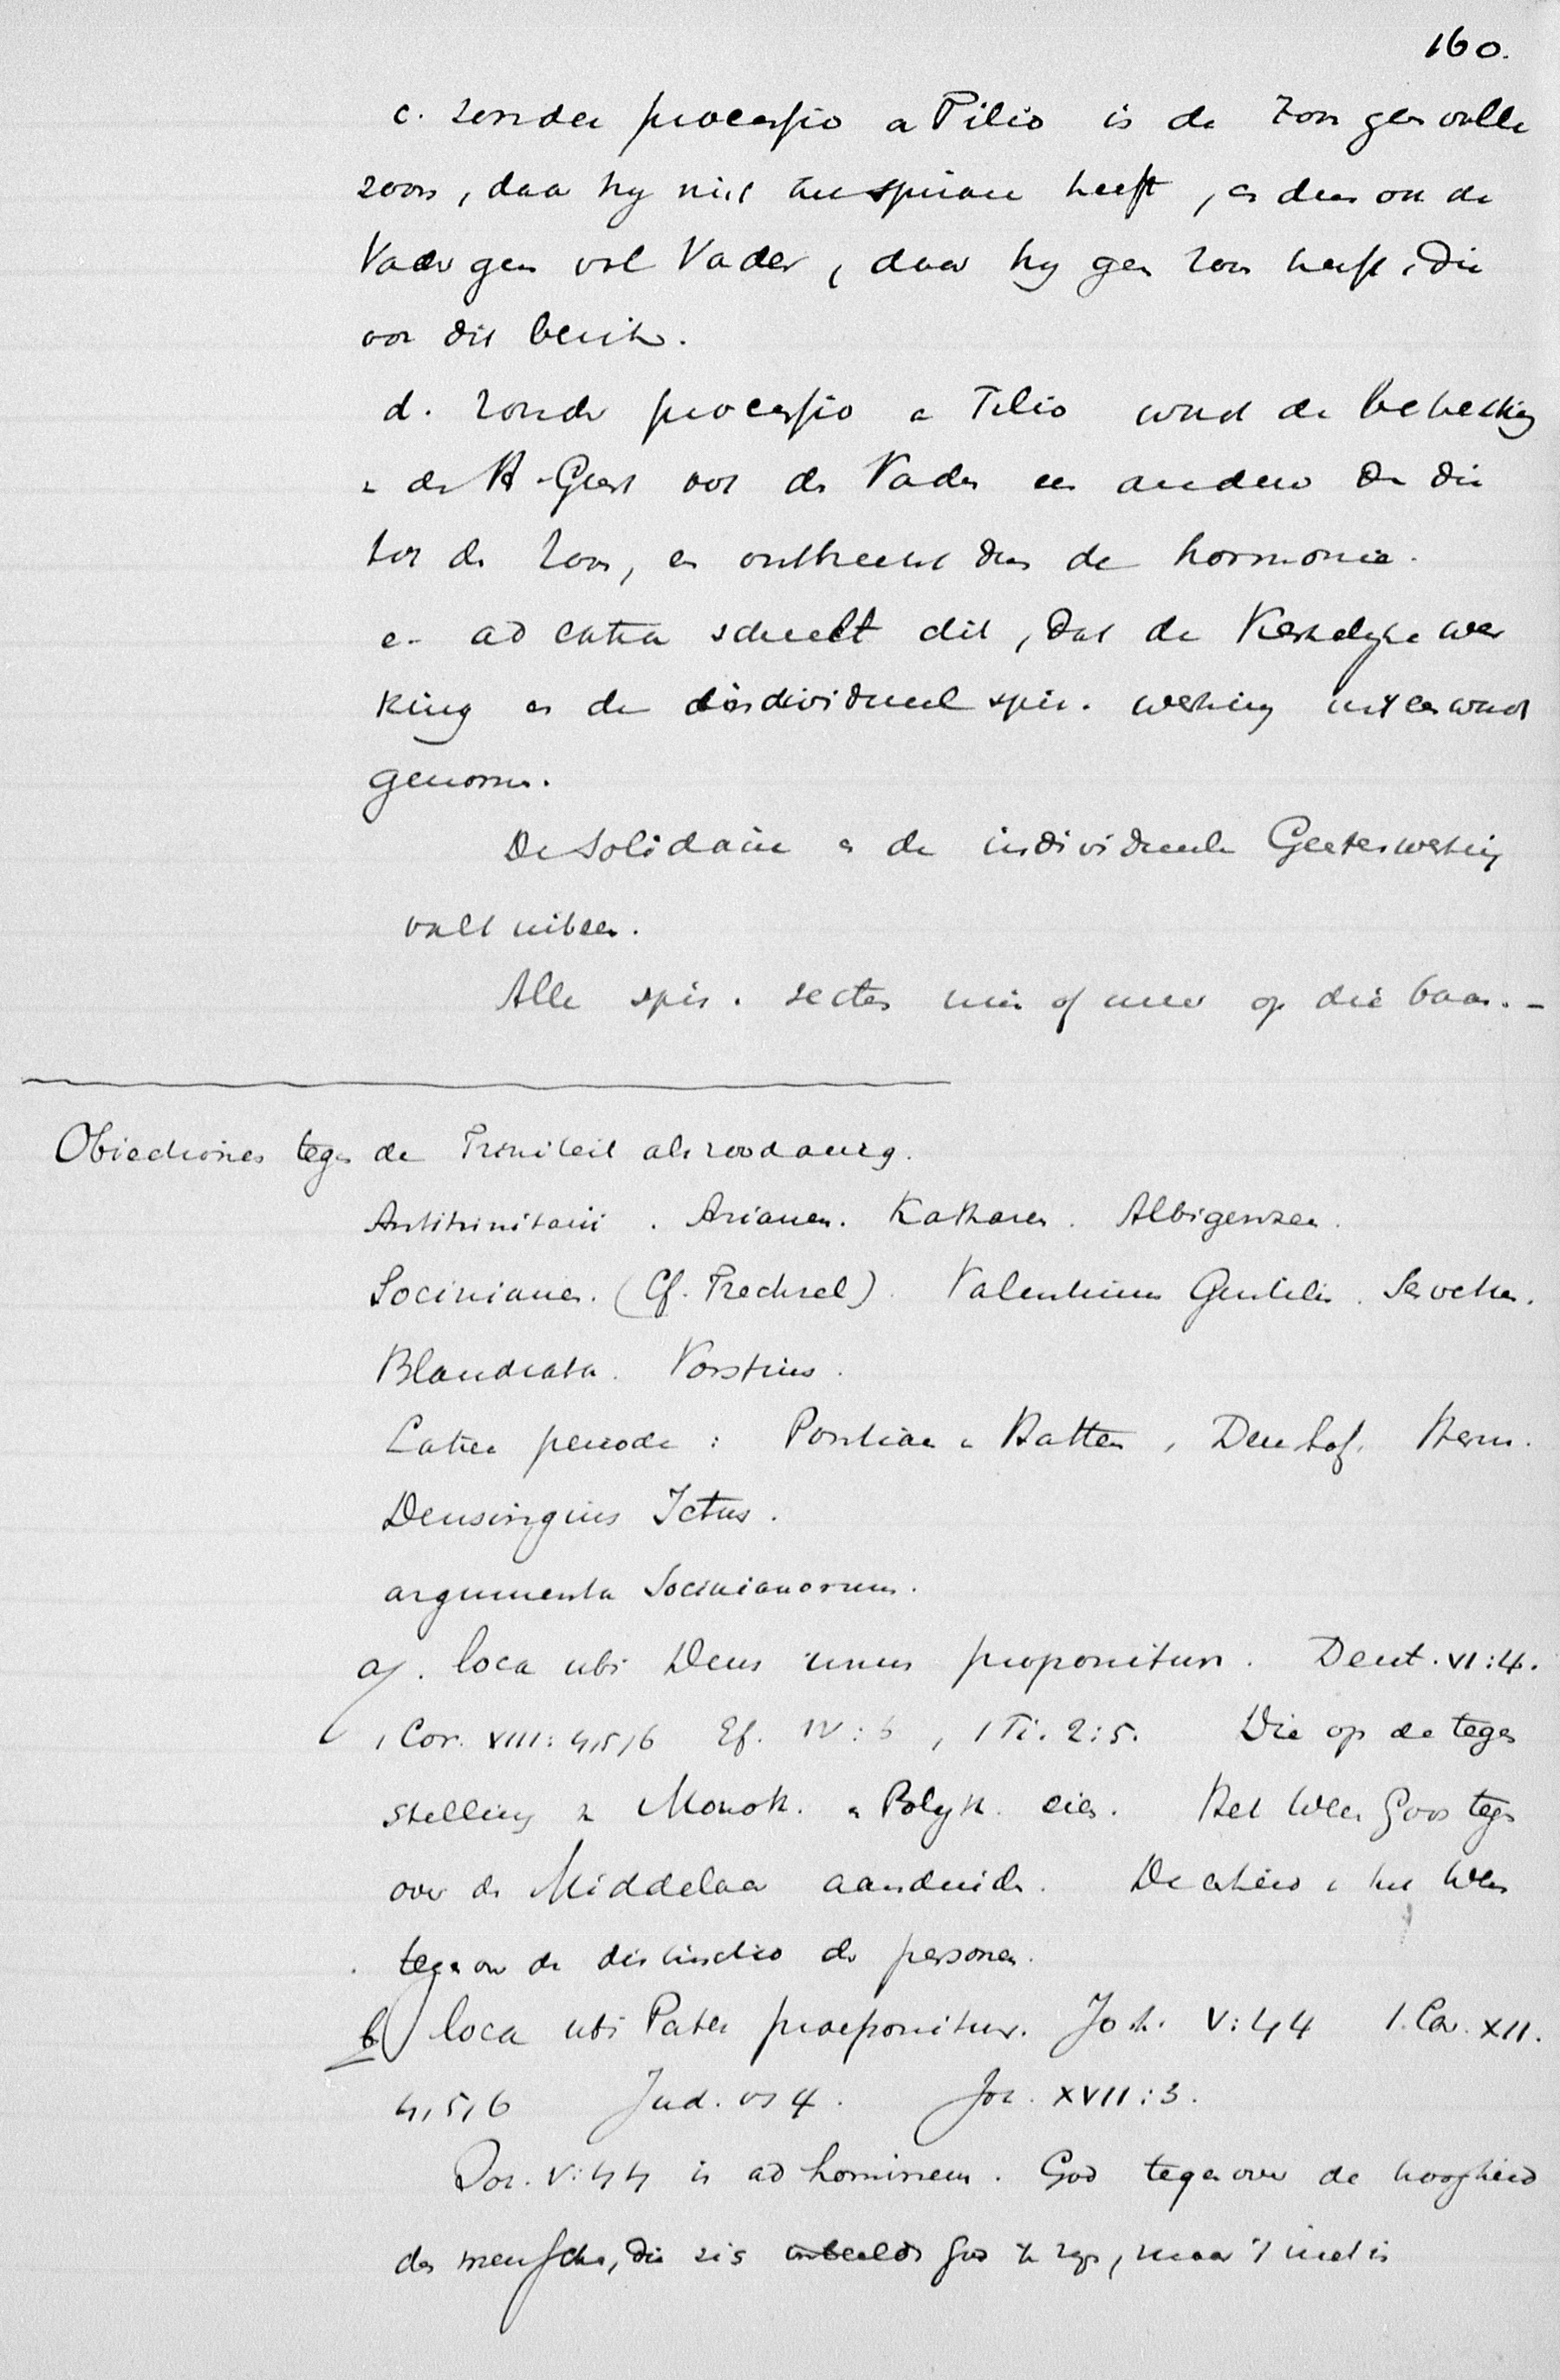 160.
c. zonder processio a Filio is de Zoon geen volle
zoon, daar hy niet het spirare heeft, en dus ook de
Vader geen vol Vader, daar hy geen Zoon heeft, die
ook dit bezit.
d. Zonder processio a Filio word de betrekking
v. d. H. Geest tot de Vader een andere dan die
tot de Zoon, en ontbreekt dus de harmonie.
e. ad extra scheelt dit, dat de Kerkelyke wer
king en de individueel spir. werking uiteen word
genomen.
De solidaire en de individueele Geesteswerking
valt uiteen.
Alle spir. secten min of meer op die baan. -
Obiectiones tegen de Triniteit als zoodanig.
Antitrinitarii. Arianen. Katharen. Albigenzen.
Socinianen. (Cf. Trechsel). Valentinus Gentilis. Servetus.
Blandrata. Vorstius.
Latere periode: Pontiaan v. Hattem, Deurhof. Herm.
Deusingius Ictus.
argumenta Socinianorum.
a). loca ubi Deus unus proponitur. Deut. VI:4.
1 Cor. VIII: 4,5,6 Ef. IV: 6, 1 Ti. 2:5. Die op de tegen
stelling v. Monoth. en Polyth. zien. Het Wezen Gods tegen
over de Middelaar aanduiden. De eenheid v. het Wezen
tegenover de distinctio der personen.
b) loca ubi Pater praeponitur. Joh. V:44 1. Cor. XII.
4,5,6 Jud. vs 4. Joh. XVII:3.
Joh. V:44 is ad hominem. God tegenover de hoogheid
der menschen, die zich inbeelden God te zyn, maar 't niet is